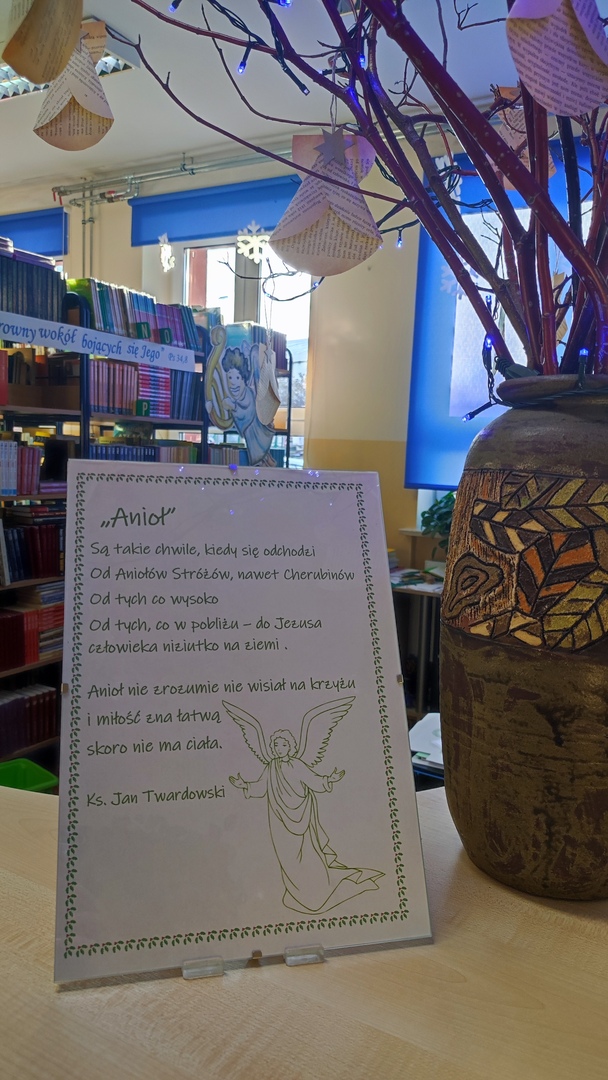 rowny wokół bojących się Jego" Ps 34,8
„Anioł"
Są takie chwile, kiedy się odchodzi
Od Aniołów Stróżów, nawet Cherubinów
Od tych co wysoko
Od tych, co w pobliżu – do Jezusa
człowieka niziutko na ziemi .
Anioł nie zrozumie nie wisiał na krzyżu
i miłość zna łatwą
skoro nie ma ciała.
Ks. Jan Twardowski